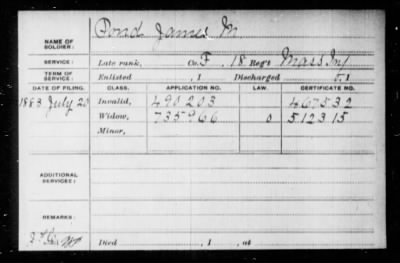 NAME OF SOLDIER: Pond James M.
SERVICE: Late rank, Co. F, 18 Reg't Mass Inf
TERM OF SERVICE: Enlisted , 1 Discharged , 1
DATE OF FILING. CLASS. APPLICATION NO. LAW. CERTIFICATE NO.
1883 July 20 Invalid, 490203 467532
Widow, 735966 512315
Minor,
ADDITIONAL SERVICES:
REMARKS:
Died , 1 , at